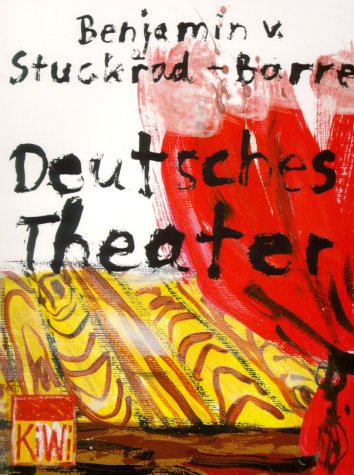 Benjamin v.
Stuckrad-Barre
Deutsches
Theater
KiWi